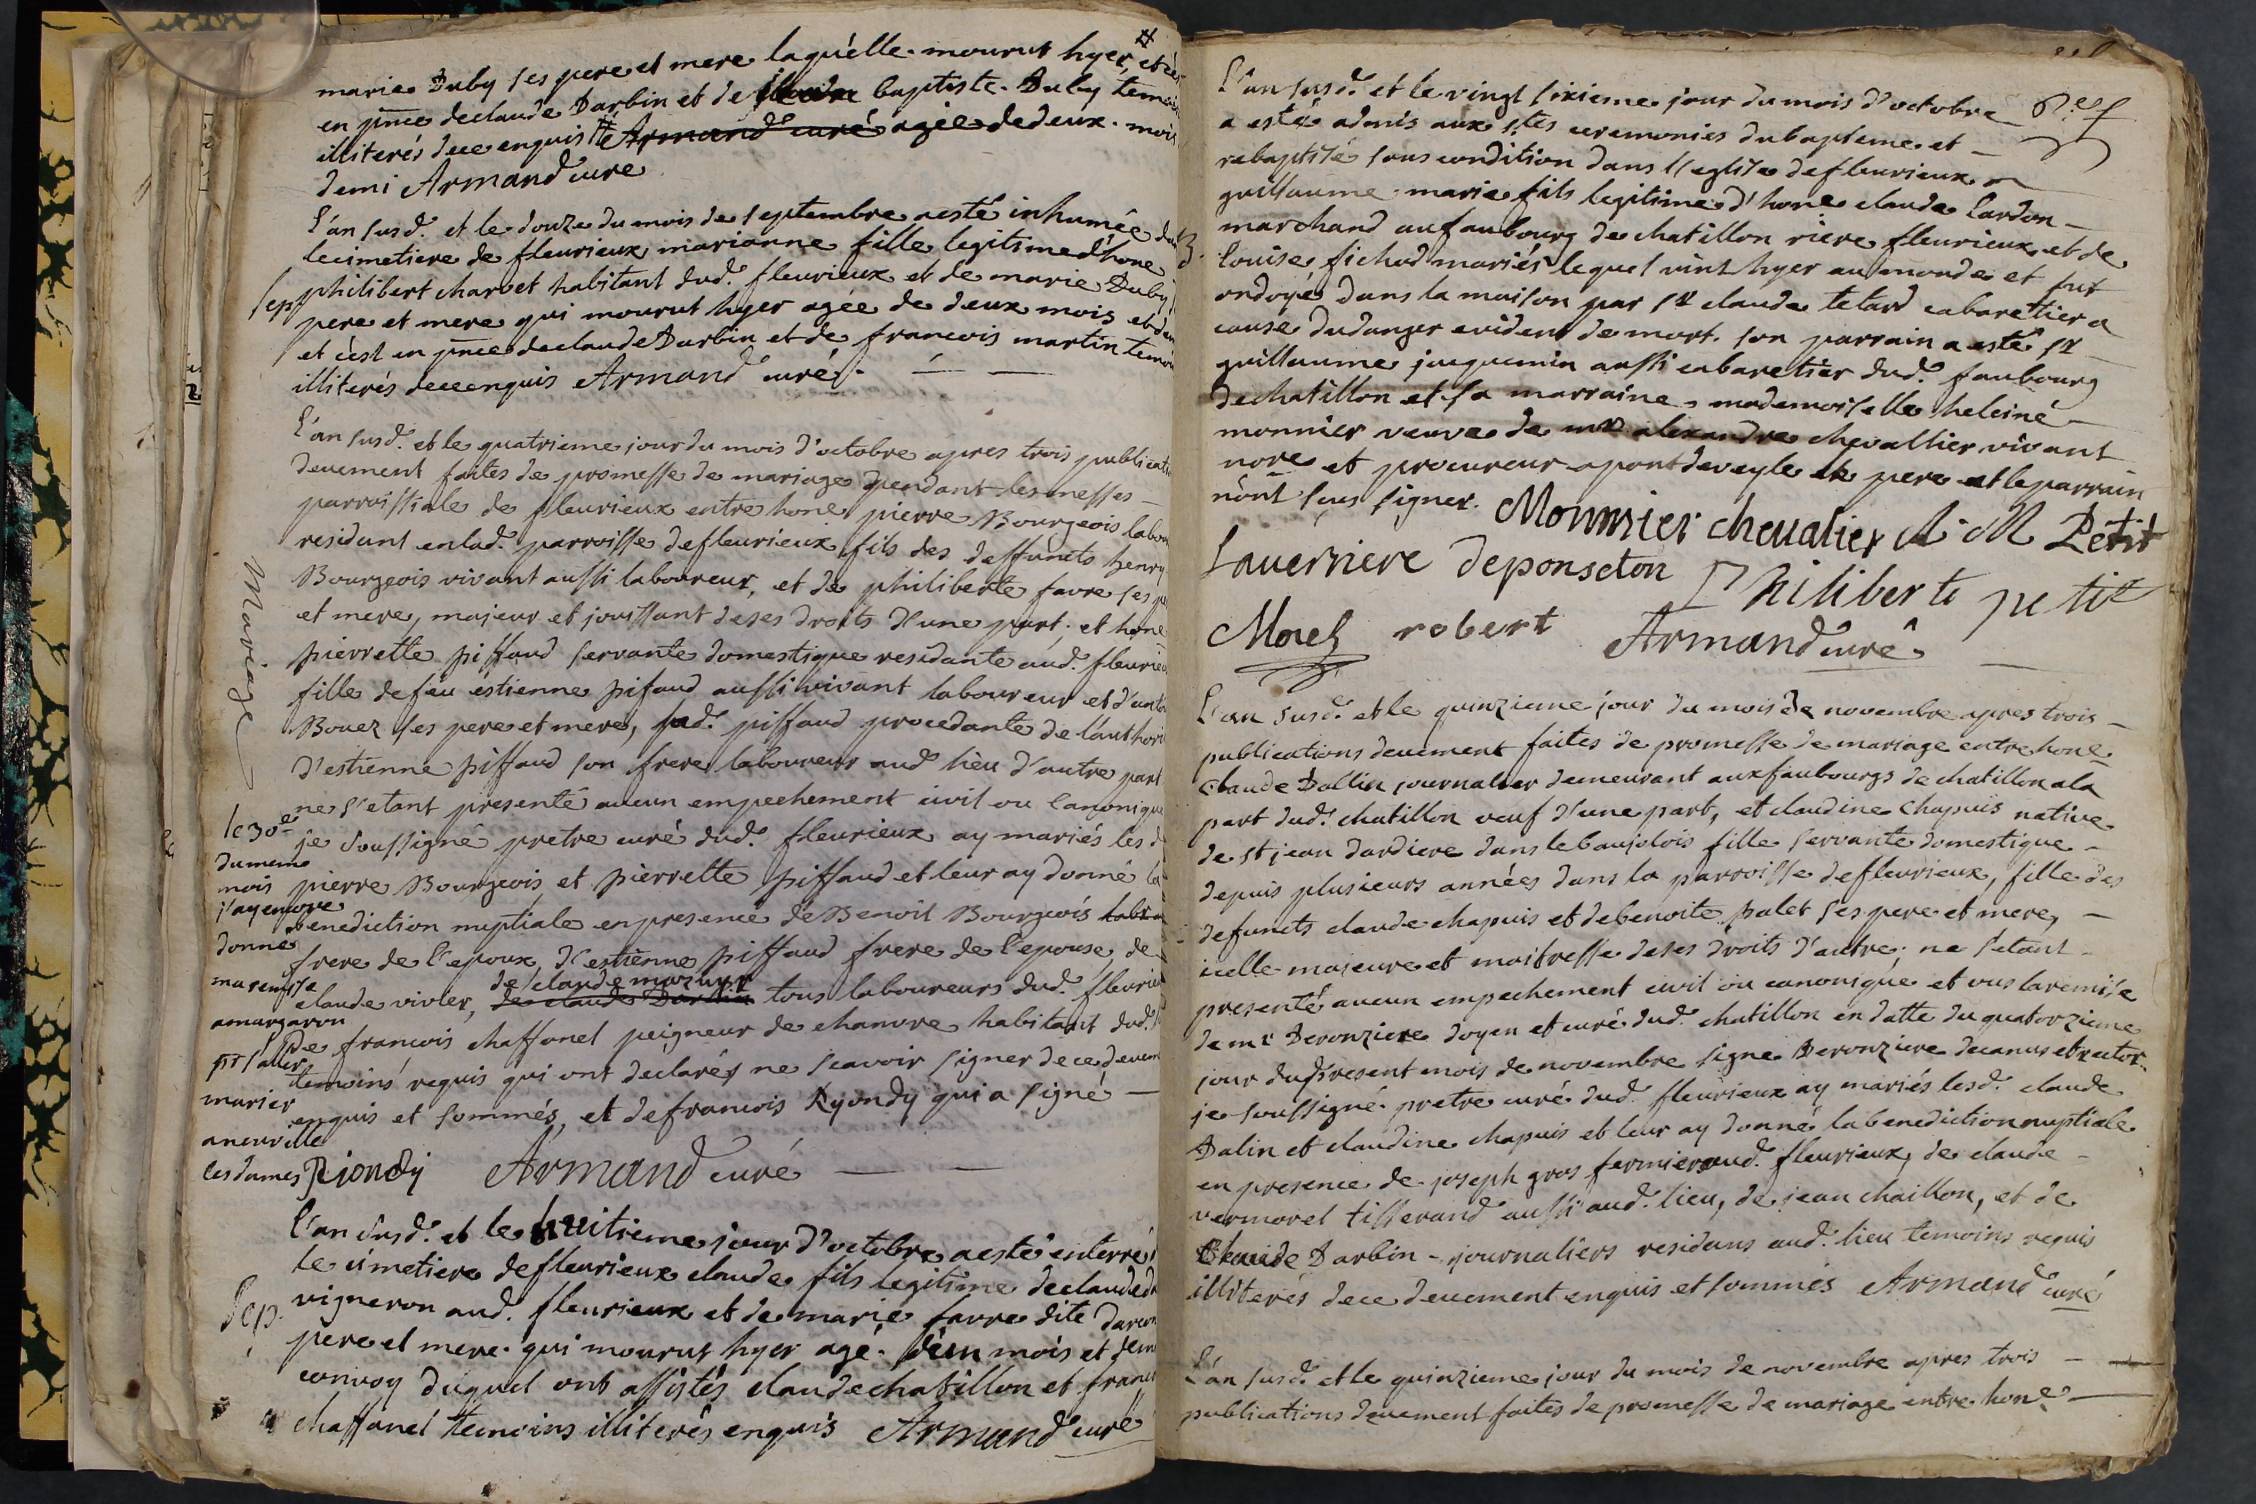 marie Duby ses pere et mere laquelle mourut hyer, # et c'est
en pnce de claude Darbin et de baptiste Duby temoins
illiterés de ce enquis # Armand curé agée de deux mois
demi Armand cure
L'an susd. et le douze du mois de septembre a esté inhumée dans
le cimetiere de fleurieux marianne fille legitime d'hone
Sep philibert charvet habitant dud. fleurieux et de marie Duby
pere et mere qui mourut hyer agée de deux mois et demi
et c'est en pnce de claude Darbin et de francois martin temoins
illiterés de ce enquis Armand curé.
L'an susd. et le quatrieme jour du mois d'octobre apres trois publications
deuement faites de promesse de mariage pendant les messes
parroissiales de fleurieux entre hone pierre Bourgeois labour
residant en lad. parroisse de fleurieux fils des deffuncts henry
Bourgeois vivant aussi laboureur, et de philiberte favre ses pere
et mere, majeur et jouissant de ses droits d'une part; et hone
pierrette piffaud servante domestique residante aud. fleurieux
fille de feu estienne pifaud aussi vivant laboureur et d'
Bouez ses pere et mere, lad. piffaud procedante de l'authorité
d'estienne piffaud son frere laboureur aud. lieu d'autre part
Mariage
ne s'etant presenté aucun empechement civil ou canonique
je soussigné pretre curé dud. fleurieux ay mariés les d
pierre Bourgeois et pierrette piffaud et leur ay donné la
benediction nuptiale en presence de Benoit Bourgeois labr
frere de l'epoux, d'estienne piffaud frere de l'epouse, de
de claude mazuyr
claude vivier, de claude Darbin tous laboureurs dud. fleurieux
de francois chaffanel peigneur de chanvre habitant dud.
temoins requis qui ont declarés ne scavoir signer de ce deuement
enquis et sommés, et de francois Ryondy qui a signé
Riondy Armand curé
le 30e
du meme
mois
j'ay encore
donné
ma remise
a margaron
pr s'aller
marier
a neuville
les dames
L'an susd. et le huitieme jour d'octobre a esté enterré
le cimetiere de fleurieux claude fils legitime de claude
Sep. vigneron aud. fleurieux et de marie favre dite
pere et mere qui mourut hyer agé d'un mois et demi
convoy duquel ont assistés claude chatillon et francois
chaffanel temoins illiterés enquis Armand curé
L'an susd. et le vingt sixieme jour du mois d'octobre
a esté admis aux stes ceremonies du bapteme et
rebaptisé sous condition dans l'eglise de fleurieux
guillaume marie fils legitime d'hone claude Lardon
marchand au faubourg de chatillon riere fleurieux et de
B. louise fichod mariés lequel vint hyer au monde et fut
ondoyé dans la maison par sr claude tetard cabaretier a
cause du danger evident de mort. son parrain a esté sr
guillaume juquemin aussi cabaretier dud. faubourg
de chatillon et sa marraine mademoiselle heleine
monnier veuve de mre alexandre chevallier vivant
nore et procureur a pontdeveyle le pere et le parrain
n'ont sçus signer. Monnier chevalier A. M Petit
Laverniere deponseton Philiberte petit
Morel robert Armand curé
L'an susd. et le quinzieme jour du mois de novembre apres trois
publications deuement faites de promesse de mariage entre hone
claude Dallin journalier demeurant aux faubourgs de chatillon a la
part dud. chatillon veuf d'une part, et claudine chapuis native
de st jean dardiere dans le baujolois fille servante domestique
depuis plusieurs années dans la parroisse de fleurieux, fille des
defuncts claude chapuis et de benoite palet ses pere et mere,
icelle majeure et maitresse de ses droits d'autre; ne s'etant
presenté aucun empechement civil ou canonique et vus la remise
de mr Deronziere doyen et curé dud. chatillon en datte du quatorzieme
jour du present mois de novembre signe Deronziere decanus et rector
je soussigné pretre curé dud. fleurieux ay mariés lesd. claude
Dalin et claudine chapuis et leur ay donné la benediction nuptiale
en presence de joseph gros fermier aud. fleurieux, de claude
vermorel tisserand aussi aud. lieu, de jean chaillon, et de
claude Darbin journaliers residans aud. lieu temoins requis
illiterés de ce deuement enquis et sommés Armand curé
L'an susd. et le quinzieme jour du mois de novembre apres trois
publications deuement faites de promesse de mariage entre hone